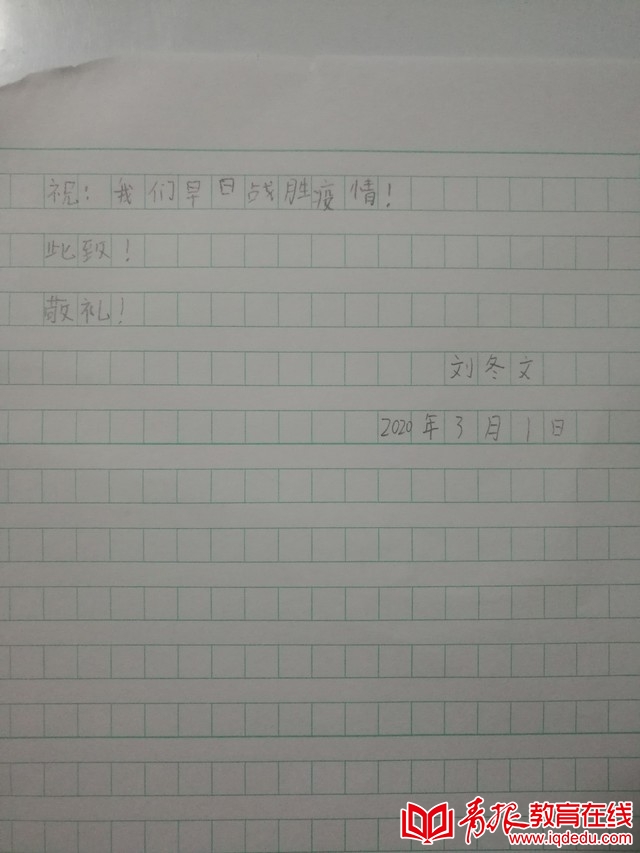 祝：我们早日战胜疫情！
此致！
敬礼！
刘冬文
2020年3月1日
青报教育在线
www.iqdedu.com